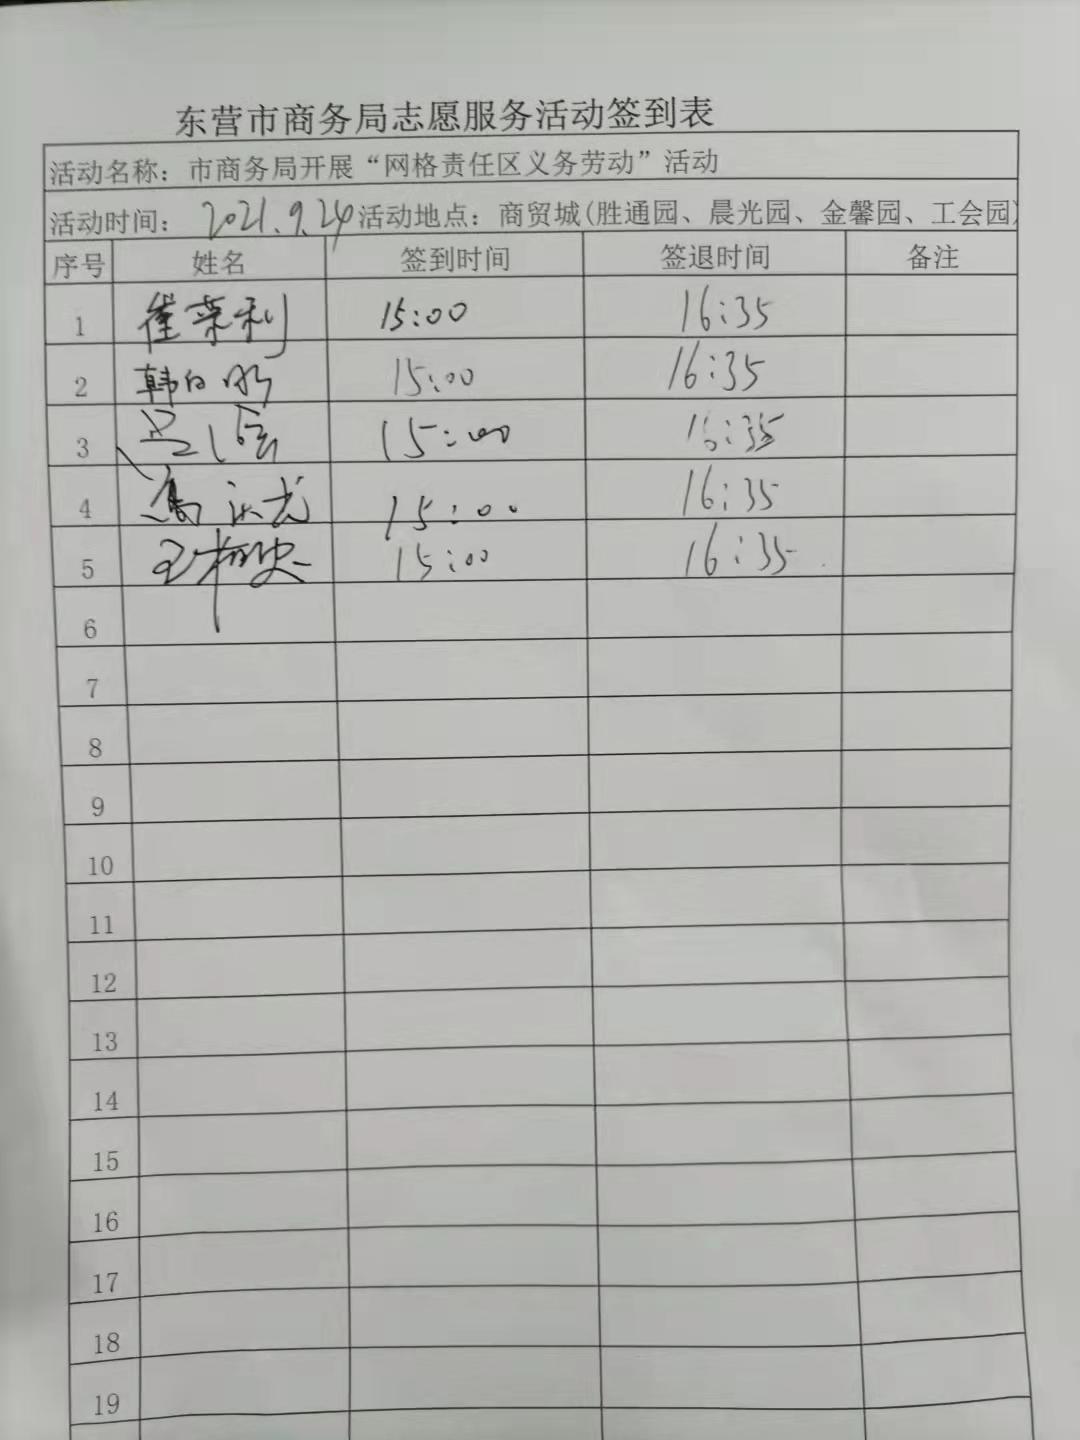 东营市商务局志愿服务活动签到表
活动名称：市商务局开展“网格责任区义务劳动”活动
活动时间：2021.9.24 活动地点：商贸城(胜通园、晨光园、金馨园、工会园)
序号 姓名 签到时间 签退时间 备注
1 崔荣利 15:00 16:35
2 韩 15:00 16:35
3 15:00 16:35
4 冯 15:00 16:35
5 王 15:00 16:35
6
7
8
9
10
11
12
13
14
15
16
17
18
19